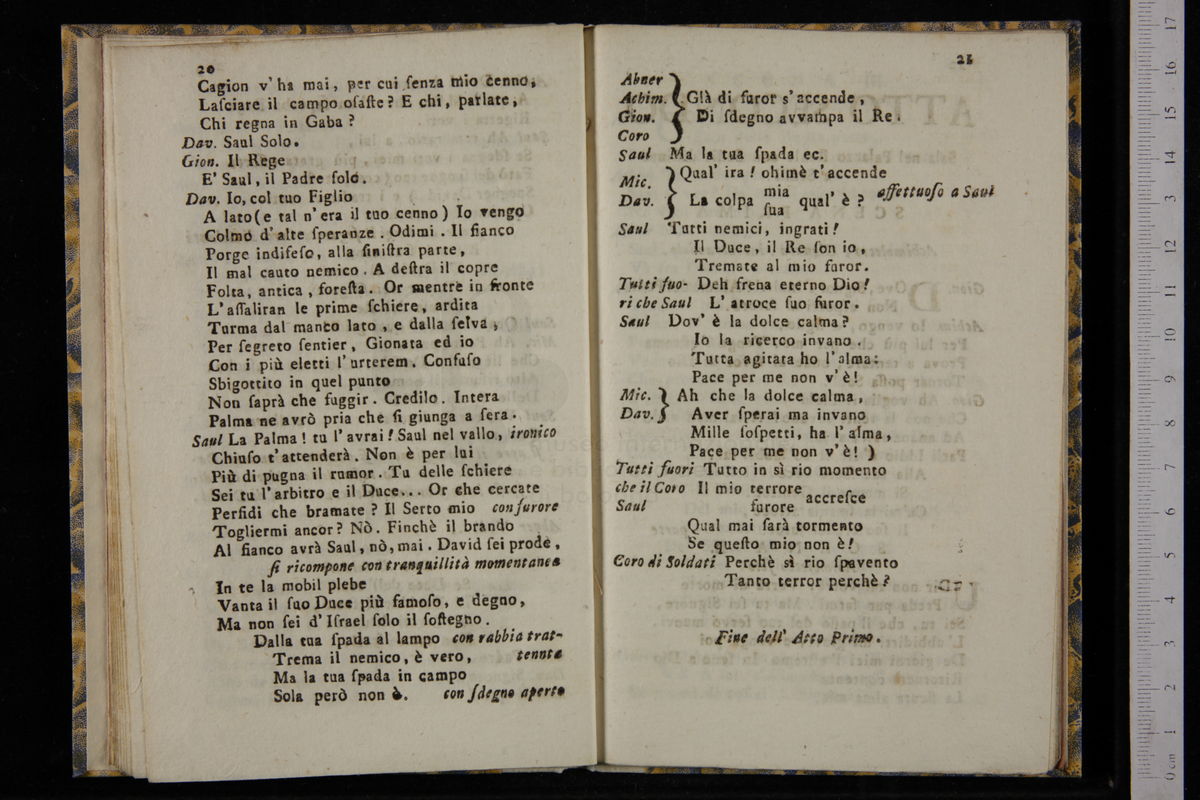 20
Cagion v' ha mai, per cui ſenza mio cenno,
Laſciare il campo oſaſte? E chi, parlate,
Chi regna in Gaba?
Dav. Saul Solo.
Gion. Il Rege
E' Saul, il Padre ſolo.
Dav. Io, col tuo Figlio
A lato (e tal n' era il tuo cenno) Io vengo
Colmo d' alte ſperanze. Odimi. Il fianco
Porge indifeſo, alla ſiniſtra parte,
Il mal cauto nemico. A deſtra il copre
Folta, antica, foreſta. Or mentre in fronte
L' aſſaliran le prime ſchiere, ardita
Turma dal manco lato, e dalla ſelva,
Per ſegreto ſentier, Gionata ed io
Con i più eletti l' urterem. Confuſo
Sbigottito in quel punto
Non ſaprà che fuggir. Credilo. Intera
Palma ne avrò pria che ſi giunga a ſera.
Saul La Palma! tu l' avrai! Saul nel vallo, ironico
Chiuſo t' attenderà. Non è per lui
Più di pugna il rumor. Tu delle ſchiere
Sei tu l' arbitro e il Duce... Or che cercate
Perfidi che bramate? Il Serto mio con furore
Togliermi ancor? Nò. Finchè il brando
Al fianco avrà Saul, nò, mai. David ſei prode,
ſi ricompone con tranquillità momentanea
In te la mobil plebe
Vanta il ſuo Duce più famoſo, e degno,
Ma non ſei d' Iſrael ſolo il ſoſtegno.
Dalla tua ſpada al lampo con rabbia trat-
Trema il nemico, è vero, tenuta
Ma la tua ſpada in campo
Sola però non è. con ſdegno aperto
21
Abner
Achim. Già di furor s' accende,
Gion. Di ſdegno avvampa il Re.
Coro
Saul Ma la tua ſpada ec.
Mic. Qual' ira! ohimè t' accende
Dav. La colpa mia ſua qual' è? affettuoſo a Saul
Saul Tutti nemici, ingrati!
Il Duce, il Re ſon io,
Tremate al mio furor.
Tutti fuo- Deh frena eterno Dio!
ri che Saul L' atroce ſuo furor.
Saul Dov' è la dolce calma?
Io la ricerco invano.
Tutta agitata ho l' alma:
Pace per me non v' è!
Mic. Ah che la dolce calma,
Dav. Aver ſperai ma invano
Mille ſoſpetti, ha l' alma,
Pace per me non v' è! )
Tutti fuori Tutto in sì rio momento
che il Coro Il mio terrore accreſce
Saul furore
Qual mai ſarà tormento
Se queſto mio non è!
Coro di Soldati Perchè sì rio ſpavento
Tanto terror perchè?
Fine dell' Atto Primo.